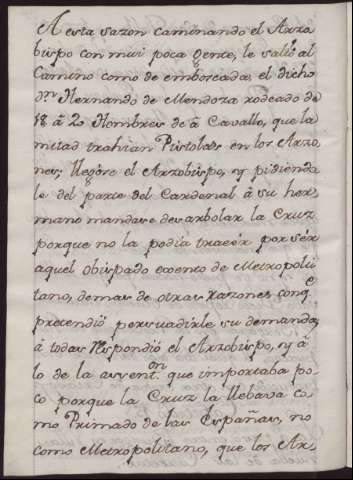 A esta sazon caminando el Arzo
bispo con mui poca gente, le salió al
Camino como de emboscada el dicho
Dn. Hernando de Mendoza rodeado de
18 á 20 Hombres de á Cavallo, que la
mitad trahian Pistolas en los Arzo
nes; Llegóse el Arzobispo, y pidiendo
le de parte del Cardenal á su her
mano mandase desarbolar la Cruz
porque no la podia traer por sér
aquel obispado exento de Metropoli
tano, demas de otras razones conq.e
pretendió persuadirle su demanda,
á todas respondió el Arzobispo, y á
lo de la exsenon. que importaba po
co porque la Cruz la llebava co
mo Primado de las Españas, no
como Metropolitano, que los Ar,